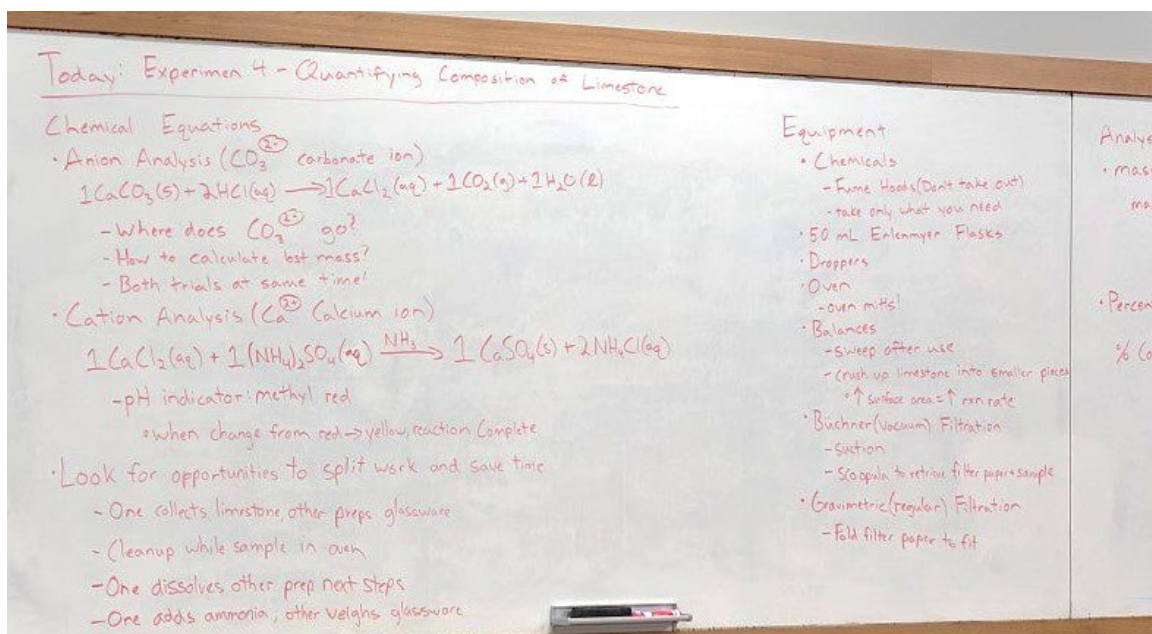 Today: Experimen 4 - Quantifying Composition of Limestone
Chemical Equations
• Anion Analysis (CO₃²⁻ carbonate ion)
1CaCO₃(s) + 2HCl(aq) → 1CaCl₂(aq) + 1CO₂(g) + 1H₂O(l)
- Where does CO₃²⁻ go?
- How to calculate lost mass?
- Both trials at same time!
• Cation Analysis (Ca²⁺ Calcium ion)
1CaCl₂(aq) + 1(NH₄)₂SO₄(aq) NH₃→ 1CaSO₄(s) + 2NH₄Cl(aq)
- pH indicator: methyl red
• when change from red → yellow, reaction complete
• Look for opportunities to split work and save time
- One collects limestone, other preps glassware
- Cleanup while sample in oven
- One dissolves other prep next steps
- One adds ammonia, other weighs glassware
Equipment
• Chemicals
- Fume Hoods (Don't take out)
- take only what you need
• 50 mL Erlenmyer Flasks
• Droppers
• Oven
- oven mitts!
• Balances
- sweep after use
- crush up limestone into smaller pieces
• ↑ surface area = ↑ rxn rate
• Büchner (Vacuum) Filtration
- suction
- Scoppula to retrieve filter paper + sample
• Gravimetric (regular) Filtration
- Fold filter paper to fit
Analys
• mas
ma
• Percen
% Co